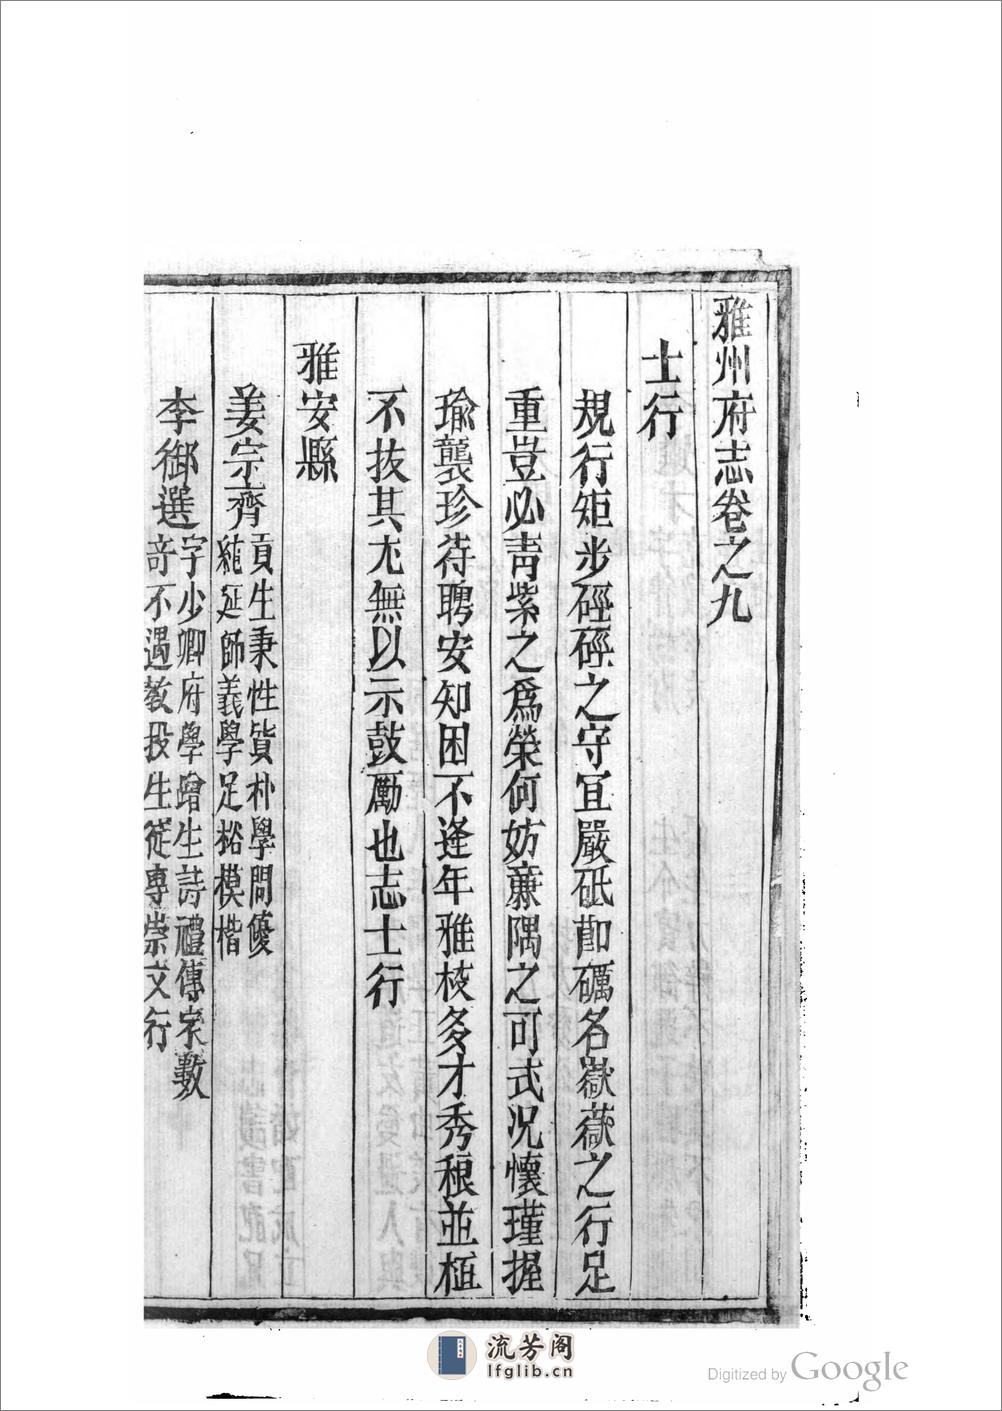 雅州府志卷之九
士行
規行矩步硜硜之守宜嚴砥節礪名嶽嶽之行足
重豈必青紫之爲榮何妨亷隅之可式況懷瑾握
瑜襲珍待聘安知困不逢年雅棫多才秀稂並植
不抜其尤無以示鼓勵也志士行
雅安縣
姜宗齊
貢生秉性質朴學問優
純延師義學足裕模楷
李御選
字少卿府學增生詩禮傳家數
竒不遇教投生徒專崇文行
流芳阁
lfglib.cn
Digitized by Google